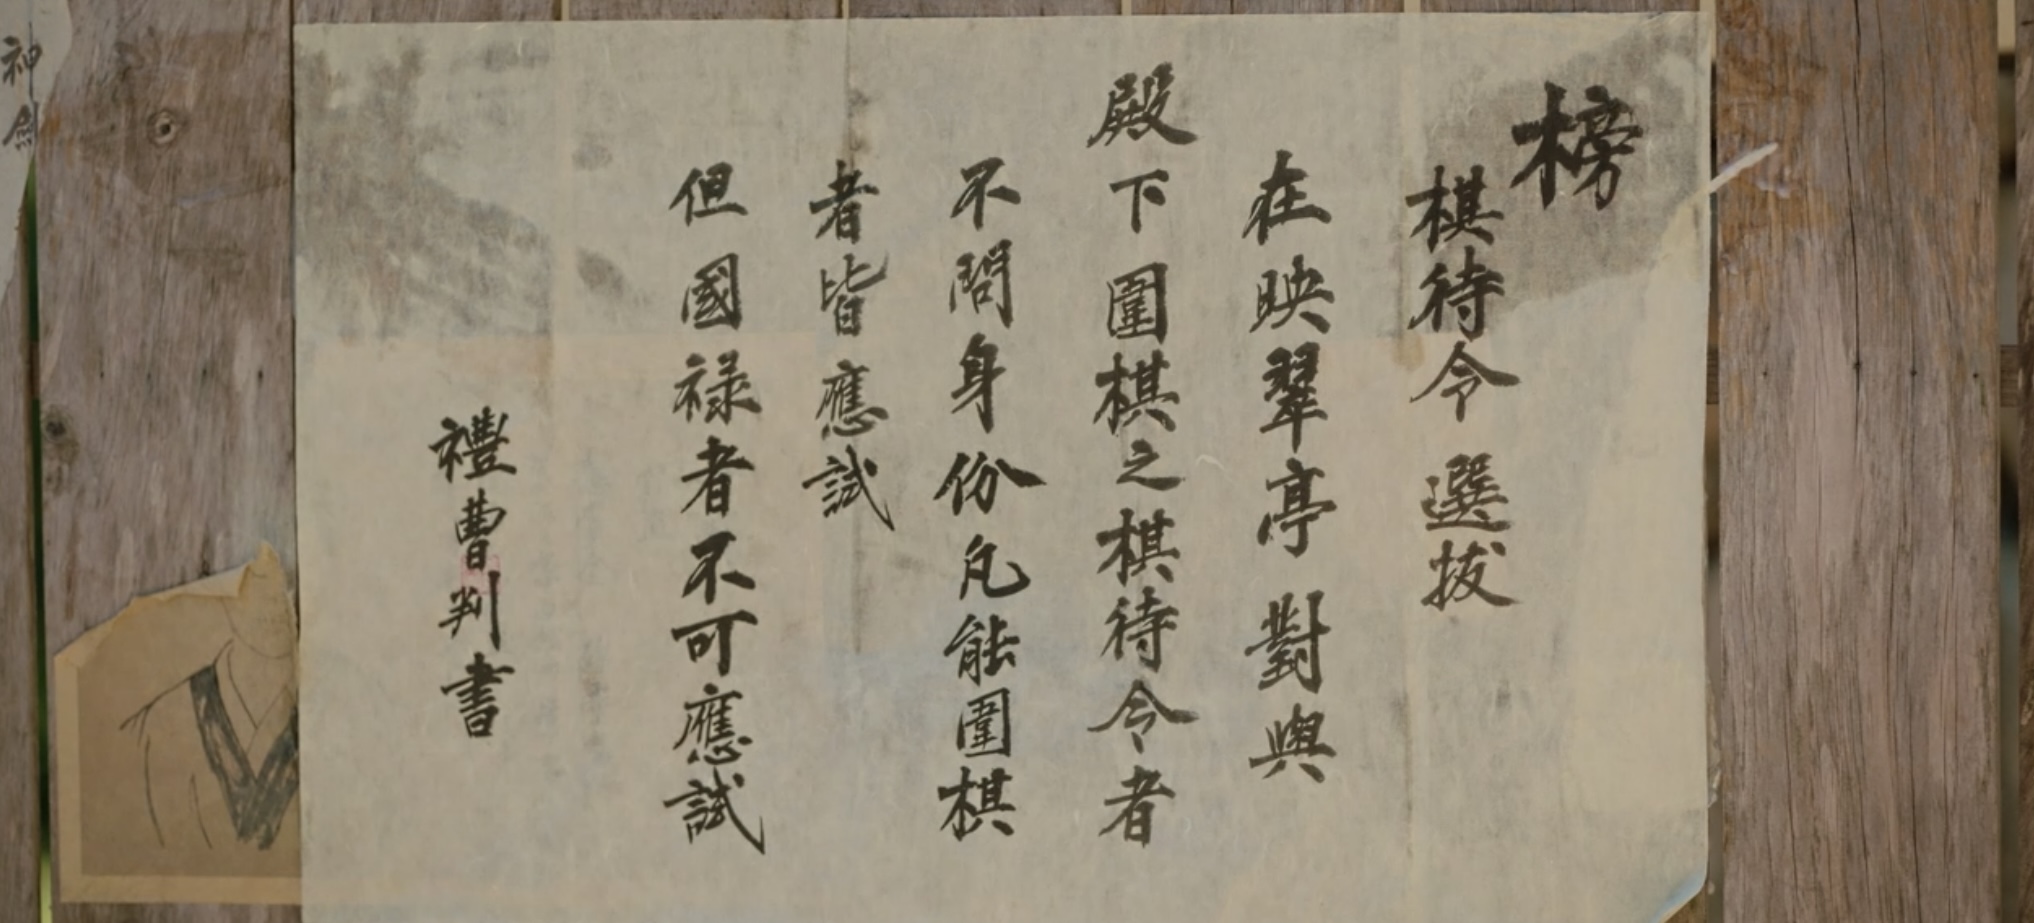 榜
棋待令 選拔
在映翠亭 對與
殿下圍棋之棋待令者
不問身份凡能圍棋
者皆應試
但國祿者不可應試
禮曹判書
神劍